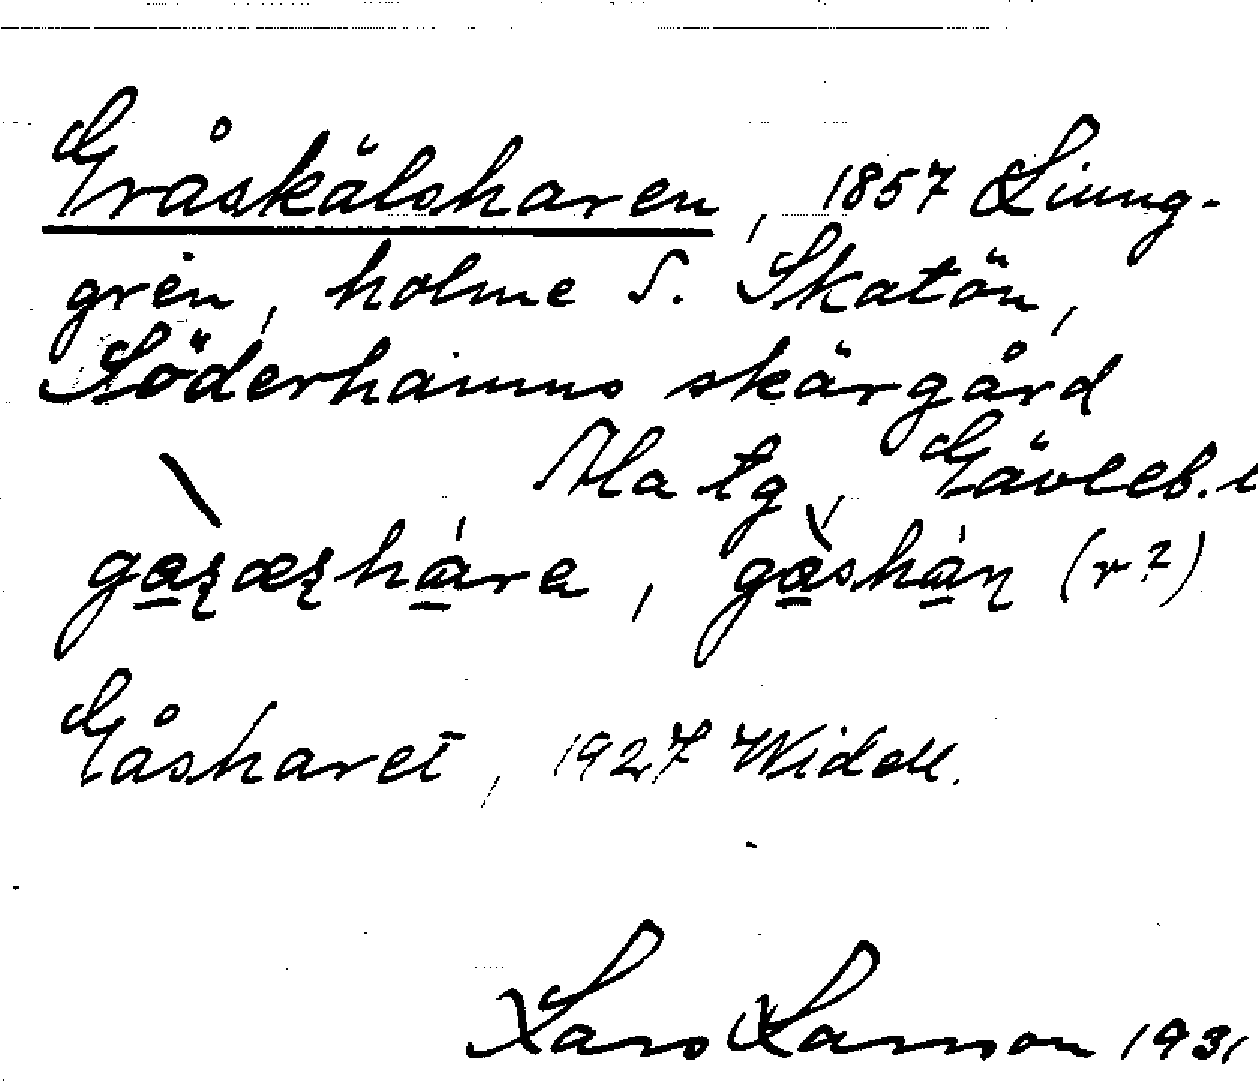 Gråskälsharen, 1857 Liung-
grén, holme S. Skatön,
Söderhamns skärgård
Ala tg, Gävleb. l
Gåsharet, 1927 Widell.
Lars Larsson 1931